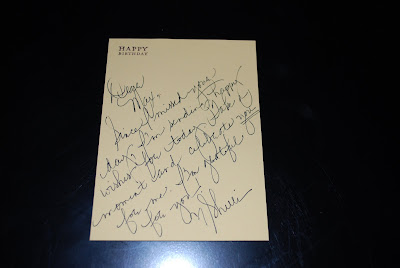 HAPPY
BIRTHDAY
Dear
Max,
Since I missed your
day, I'm sending happy
wishes for you today. Take a
moment and celebrate you
for me. I'm grateful
for you!